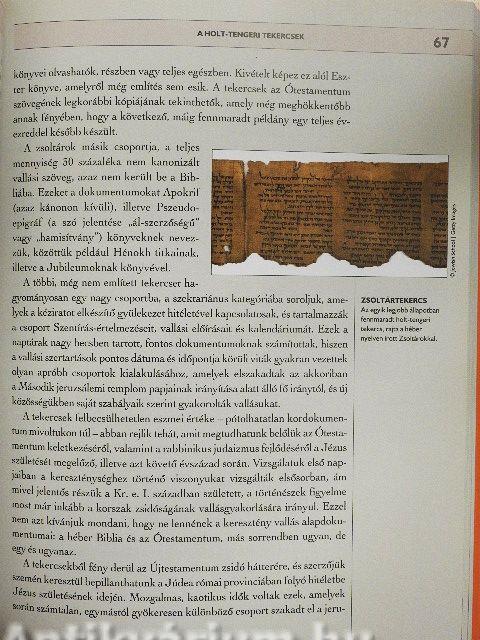 A HOLT-TENGERI TEKERCSEK
67
könyvei olvashatók, részben vagy teljes egészben. Kivételt képez ez alól Esz-
ter könyve, amelyről még említés sem esik. A tekercsek az Ótestamentum
szövegének legkorábbi kópiájának tekinthetők, amely még meghökkentőbb
annak fényében, hogy a következő, máig fennmaradt példány egy teljes év-
ezreddel később készült.
A zsoltárok másik csoportja, a teljes
mennyiség 30 százaléka nem kanonizált
vallási szöveg, azaz nem került be a Bib-
liába. Ezeket a dokumentumokat Apokrif
(azaz kánonon kívüli), illetve Pszeudo-
epigráf (a szó jelentése „ál-szerzőségű”
vagy „hamisítvány”) könyveknek nevez-
zük, közöttük például Hénokh titkainak,
illetve a Jubileumoknak könyvével.
A többi, még nem említett tekercset ha-
gyományosan egy nagy csoportba, a szektariánus kategóriába soroljuk, ame-
lyek a kéziratot elkészítő gyülekezet hitéletével kapcsolatosak, és tartalmazzák
a csoport Szentírás-értelmezéseit, vallási előírásait és kalendáriumát. Ezek a
naptárak nagy becsben tartott, fontos dokumentumoknak számítottak, hiszen
a vallási szertartások pontos dátuma és időpontja körüli viták gyakran vezettek
olyan apróbb csoportok kialakulásához, amelyek elszakadtak az akkoriban
a Második jeruzsálemi templom papjainak irányítása alatt álló fő iránytól, és új
közösségükben saját szabályaik szerint gyakorolták vallásukat.
A tekercsek felbecsülhetetlen eszmei értéke – pótolhatatlan kordokumen-
tum mivoltukon túl – abban rejlik tehát, amit megtudhatunk belőlük az Ótesta-
mentum keletkezéséről, valamint a rabbinikus judaizmus fejlődéséről a Jézus
születését megelőző, illetve azt követő évszázad során. Vizsgálatuk első nap-
jaiban a kereszténységhez történő viszonyukat vizsgálták elsősorban, ám
mivel jelentős részük a Kr. e. I. században született, a történészek figyelme
most már inkább a korszak zsidóságának vallásgyakorlására irányul. Ezzel
nem azt kívánjuk mondani, hogy ne lennének a keresztény vallás alapdoku-
mentumai: a héber Biblia és az Ótestamentum, más sorrendben ugyan, de
egy és ugyanaz.
A tekercsekből fény derül az Újtestamentum zsidó hátterére, és szerzőjük
szemén keresztül bepillanthatunk a Júdea római provinciában folyó hitéletbe
Jézus születésének idején. Mozgalmas, kaotikus idők voltak ezek, amelyek
során számtalan, egymástól gyökeresen különböző csoport szakadt el a jeru-
© Jewish School | Getty Images
ZSOLTÁRTEKERCS
Az egyik legjobb állapotban
fennmaradt holt-tengeri
tekercs, rajta a héber
nyelven írott Zsoltárokkal.